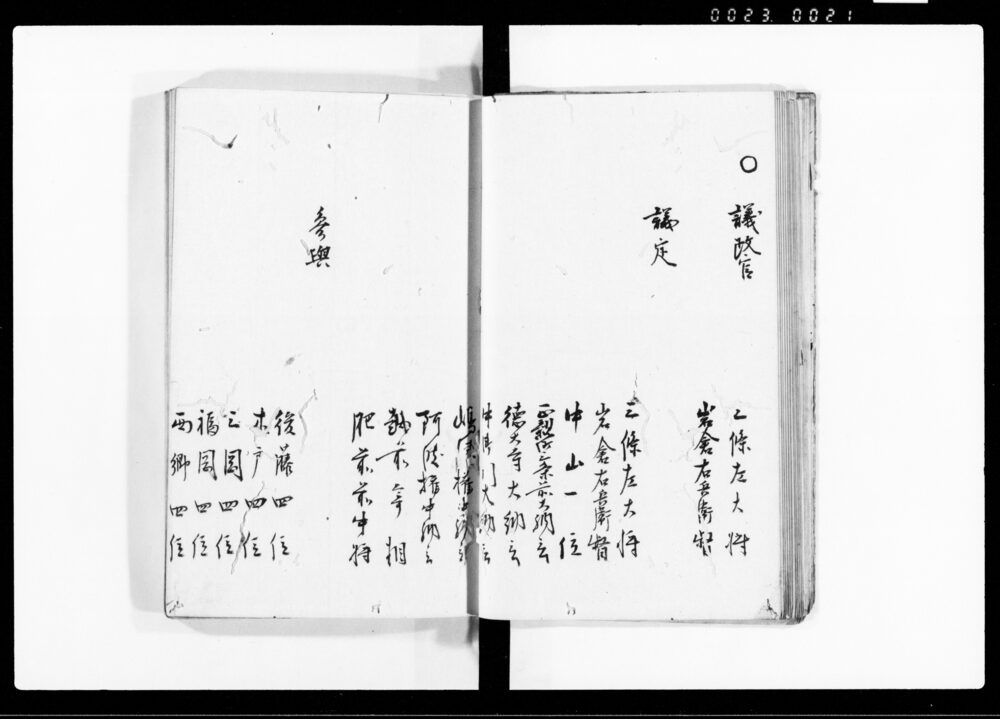 0023.0021
○
議政官
三條左大将
岩倉右兵衛督
議定
三條左大将
岩倉右兵衛督
中山一位
正親町三条前大納言
徳大寺大納言
中御門大納言
嶋津権中納言
阿波権中納言
越前宰相
肥前前中将
参與
後藤四位
木戸四位
三岡四位
福岡四位
西郷四位